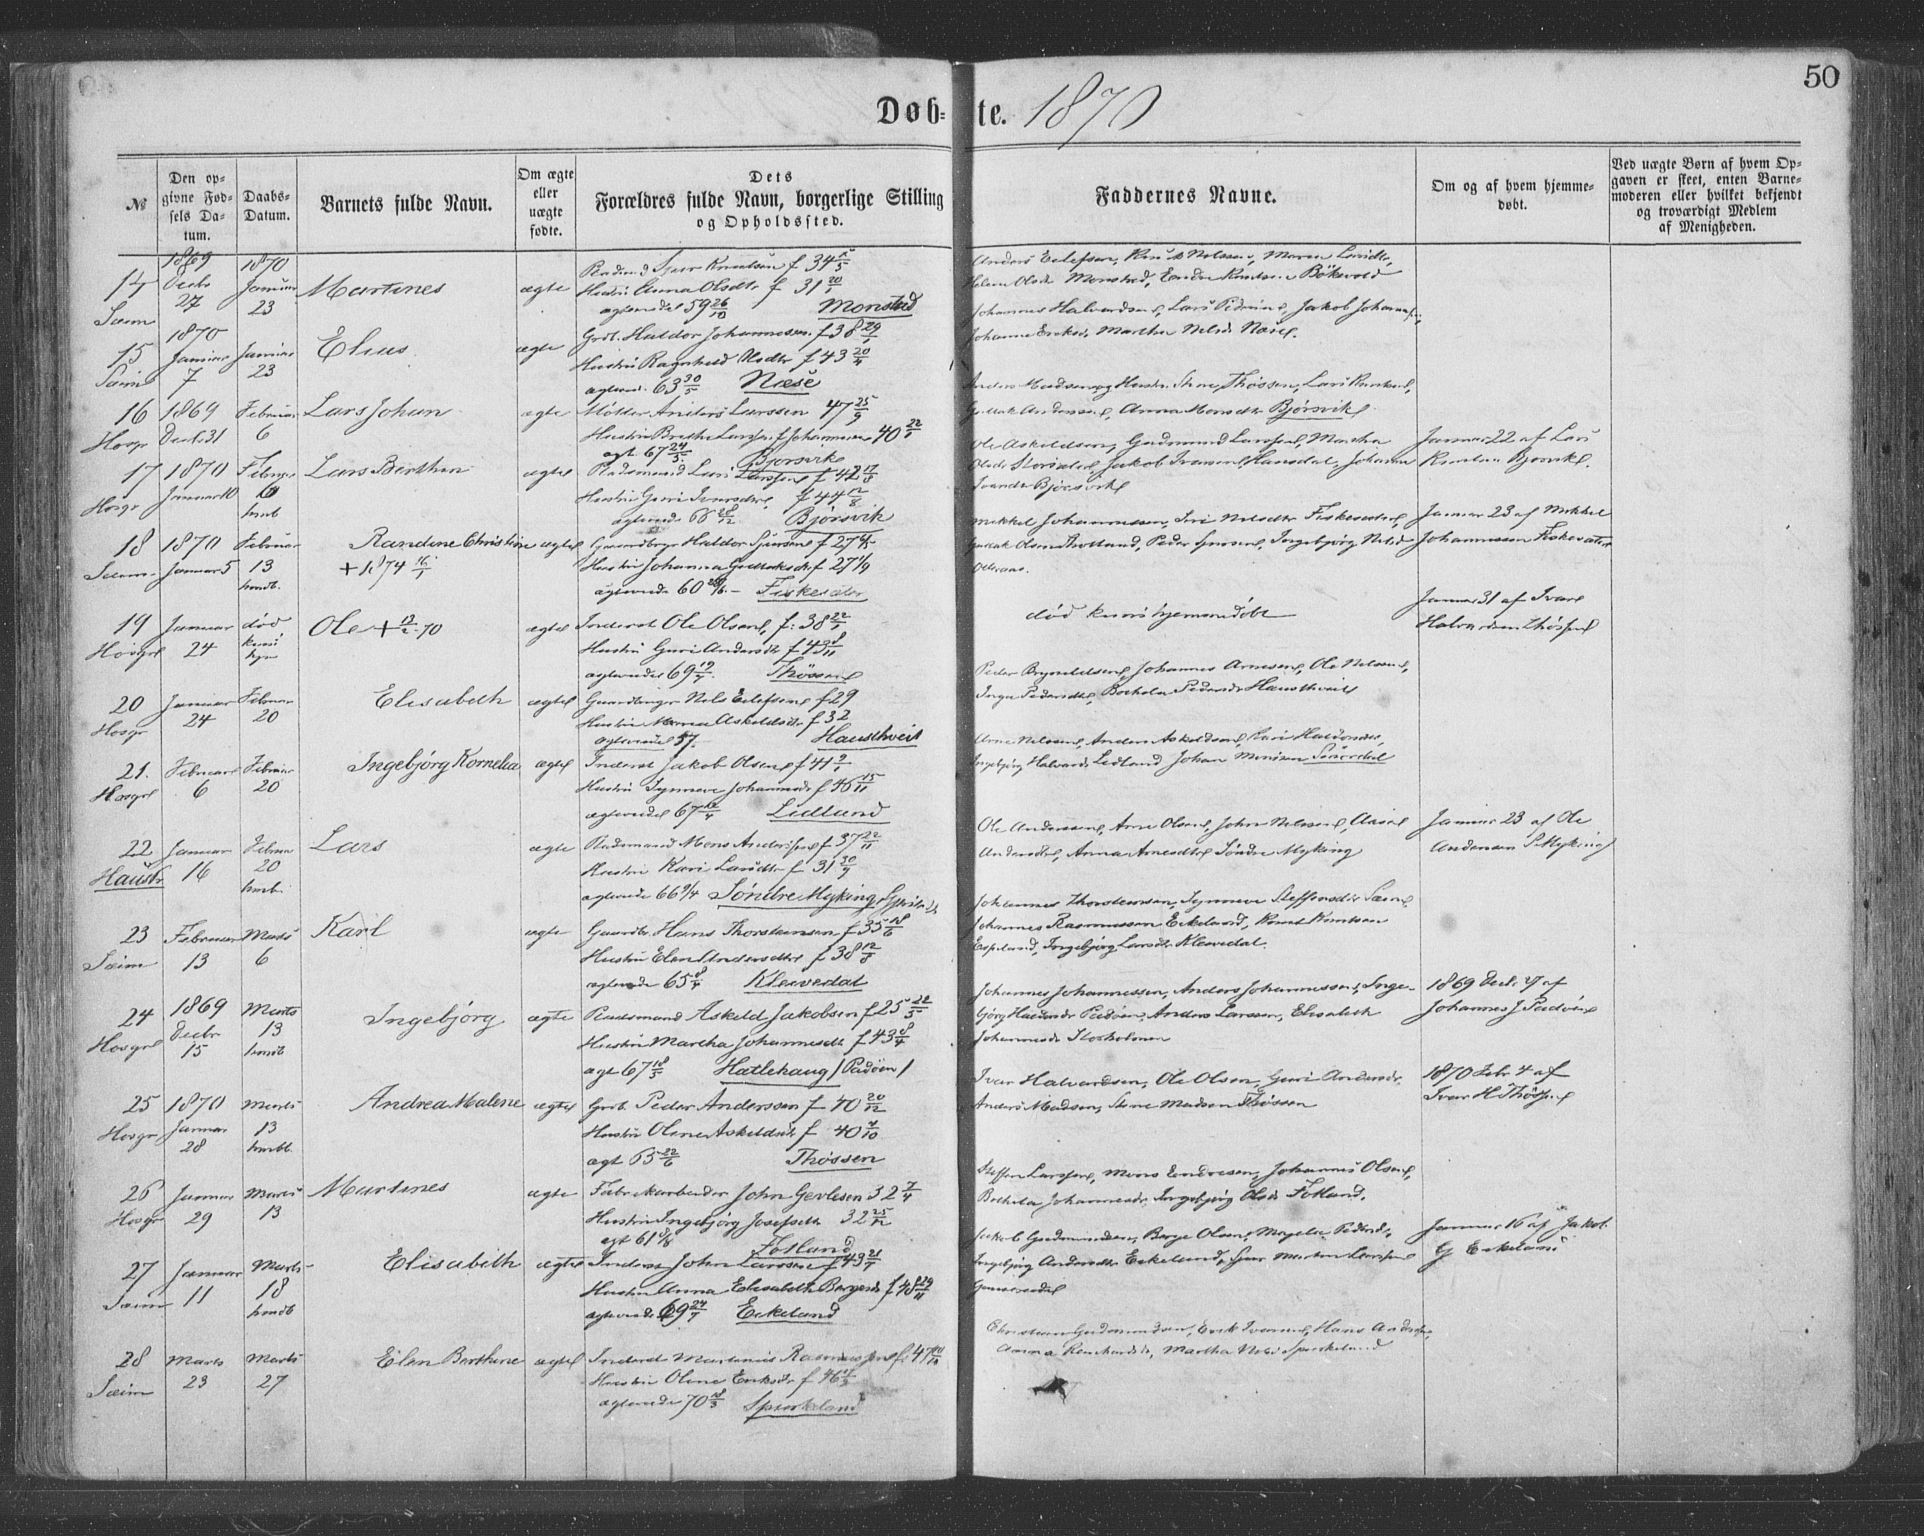 50
Døb-te. 1870
№
Den op-
givne Fød-
sels Da-
tum.
Daabs-
Datum.
Barnets fulde Navn.
Om ægte
eller
uægte
fødte.
Dets
Forældres fulde Navn, borgerlige Stilling
og Opholdssted.
Faddernes Navne.
Om og af hvem hjemme-
døbt.
Ved uægte Børn af hvem Op-
gaven er skeet, enten Barne-
moderen eller hvilket bekjendt
og troværdigt Medlem
af Menigheden.
14 1869 Decbr 27 1870 Januar 23 Martines ægte
Sæim
Sjur Knudsen f 34
Hustru Anna Olsdtr f 31
ægteviede 59 26/10 Monstad
Anders Eilefsen, Knud Nilssen, Maren Larsdtr,
Olsdtr Monstad, Endre Knutsen Bökevold
15 1870 Januar 7 Januar 23 Elias ægte
Sæim
Grdb. Haldor Johannessen f 38 29/1
Hustru Ragnhild Olsdtr f 43 20/4
ægtevied. 63 30/5 Næse
Johannes Halvardsen, Lars Pedersen, Jakob Johannessen,
Johanne Eriksdr, Martha Nilsdr Næse.
16 1869 Decb. 31 Februar 6 Lars Johan ægte
Hosgr
Møller Anders Larssen 47 25/9
Hustru Brethe Larsine f Johannessen 40 22/1
ægt 67 24/3 Bjorsvik
Anders Madsen og Hustru Stine Thössen, Lars Knutsen,
Gullak Anderssen, Anna Monsdtr Bjørsvik
17 1870 Januar 10 Februar 6 Lars Berthin ægte
Hosgr
Pladsmand Lars Larssen f 42 17/8
Hustru Guri Ivarsdtr f 44 12/8
ægteviede 65 28/12 Bjørsvik
Ole Askeldsen, Gudmund Larssen, Martha
Olsdr Storisdal, Jakob Ivarsen Hansdal, Johanna
Ivarsdr Bjørsvik
Januar 22 af Lars
Knutsen Bjorsvik.
18 1870 Januar 5 Februar 13 hmdb. Randine Christine ægte
Sæim + 1874 16/1
Gaardbrgr Haldor Sjursen f 27
Hustru Johanna Gullaksdr f 27 1/9
ægteviede 60 Fiskesæter
Mikkel Johannessen, Siri Nilsdtr Fiskesæter,
Gullak Olsen Hotland, Peder Sjursen, Ingebjørg Nilsdr
Januar 23 af Mikkel
Johannessen Fiskesæter
19 Januar 24 død Ole + 12/2 70 ægte
Hosgr
Inderst Ole Olsen, f: 38 22/1
Hustru Guri Andersdtr f 43 8/11
ægteviede 69 19/7. Thössen
død kuns hjemmedöbt
Januar 31 af Ivar
Halvardsen Thössen
20 Januar 24 Februar 20 Elisabeth ægte
Hosgr
Gaardbruger Nils Eilefsen f 29
Hustru Maria Askeldsdtr f 32
ægteviede 57. Hausthveit
Peder Brynildsen, Johannes Arnesen, Ole Nilssen,
Inga Pedersdtr, Brithla Pedersdr Hausthveit
21. Februar 6 Februar 20 Ingebjörg Kornelia ægte
Hosgr
Inderst Jakob Olsen f 41 2/1
Hustru Synneve Johannesdr f 46 15/11
ægteviede 67 12/4 Lidland
Arne Nilssen, Anders Askeldsen, Kari Halvorsdr,
Ingebjørg Halvardsdr Lidland, Johan Monsen
22 Januar 16 Februar 20 hmdb. Lars ægte
Haustr
Pladsmand Mons Anderssen f 37 22/11
Hustru Kari Larsdtr f 31 30/9
ægteviede 66 9/4 Søndre Myking
Ole Anderssen, Arne Olsen, John Nilssen,
Andersdtr, Anna Arnesdtr Söndre Myking
Januar 23 af Ole
Andersen S Myking
23 Februar 13 Marts 6 Karl ægte
Sæim
Gaardbr. Hans Thorstensen f 35 18/6
Hustru Elen Andersdtr f 38 12/8
ægteviede 65 8/4 Kleivedal
Johannes Thorstensen, Synneve Steffensdtr Sæim
Johannes Rasmussen Eikeland, Knut Knutsen
Espeland, Ingebjørg Larsdtr Kleivedal.
24 1869 Decbr 15 Marts 13 hmdb Ingebjörg ægte
Hosgr
Pladsmand Askeld Jakobsen f 25 22/5
Hustru Martha Johannesdtr f 43 8/4
ægt 67 18/5 Hatlehaug (Padöen)
Johannes Johannessen, Anders Johannessen, Inge-
bjørg Padöen, Anders Larssen, Elisabeth
Johannesdr Stocholmen
1869 Decb. 27 af
Johannes J Padöen
25 1870 Januar 28 Marts 13 hmdb. Andrea Malene ægte
Hosgr
Grdb. Peder Anderssen f 40 20/12
Hustru Oline Askeldsdtr f 40 4/10
ægt 65 22/6 Thössen
Ivar Halvardsen, Ole Olsen, Guri Andersdr.
Anders Madsen, Stine Madsen Thössen
1870 Febr 4 af
Ivar H Thössen
26 Januar 29 Marts 13 Martines ægte
Hosgr
Fabrikarbeider John Gerlesen 32 7/4
Hustru Ingebjörg Josefsdtr 32 25/12
ægt 61 5/8 Fotland
Steffen Larssen, Mons Endresen, Johannes Olsen,
Brithla Johannesdr, Ingebjørg Olsdr Fotland.
27 Januar 11 Marts 18 hmdb Elisabeth ægte
Sæim
Inderst John Larssen f 43 21/7
Hustru Anna Elisabeth Børgesdr f 48 29/11
ægteviede 69 24/7 Eikeland
Jakob Gudmundsen, Børge Olsen, Magela Pedersdr,
Ingebjørg Andersdtr Eikeland, Sjur Martin Larssen
Januar 16 af Jakob
G Eikeland
28 Marts 23 Marts 27 Elen Berthine ægte
Sæim
Inderst Martinus Rasmussen f: 47
Hustru Oline Eriksdr f 46
ægteviede 70 18/3 Spjotøland
Christian Gudmundsen, Erik Iversen, Hans Anderssen,
Anna Reinhardsdr, Martha Nilsdr